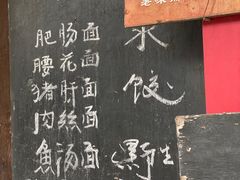 水饺
野生
肥肠面
腰花面
猪肝面
肉丝面
魚汤面